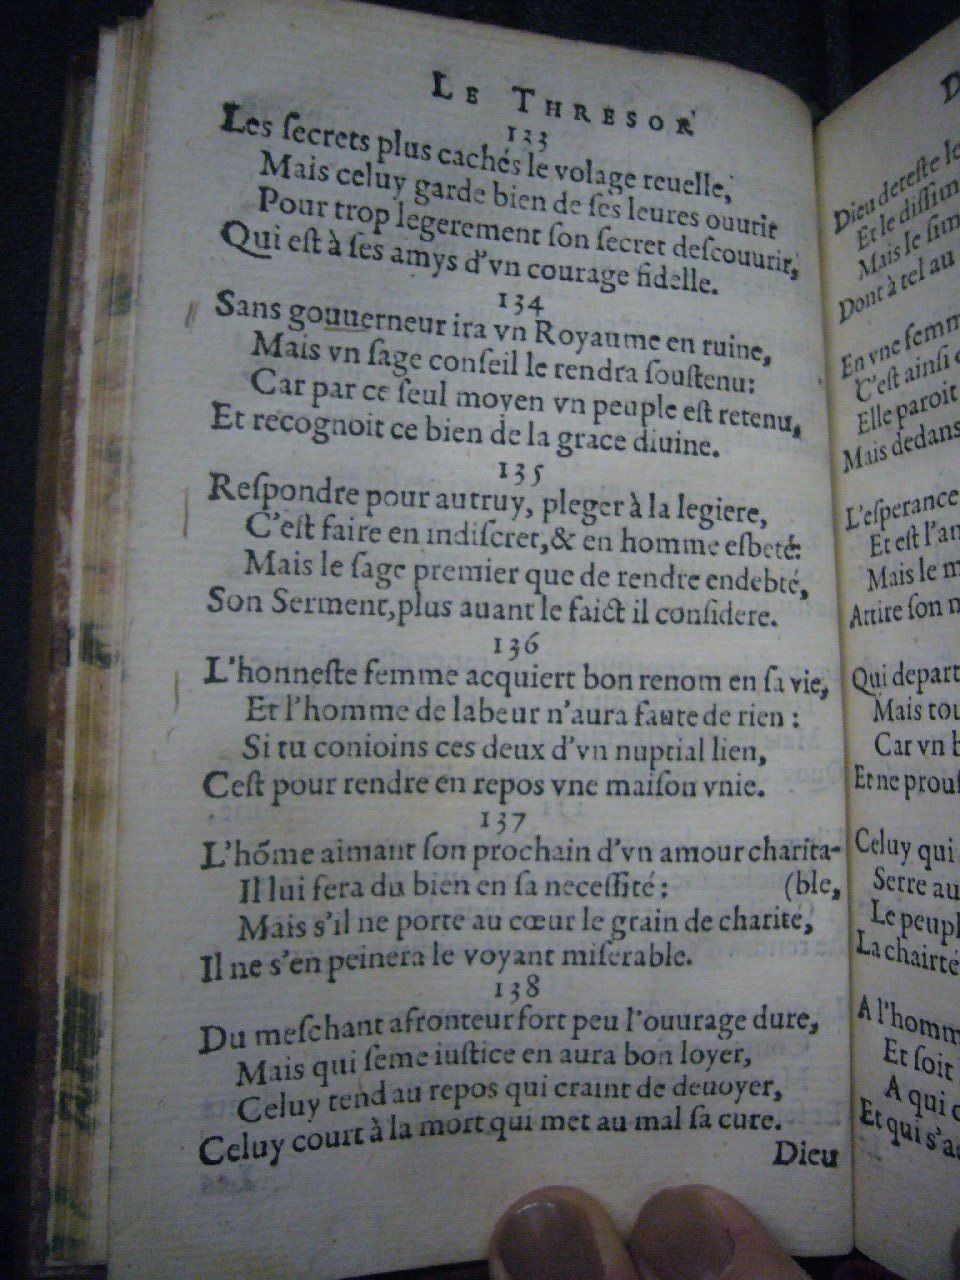 LE THRESOR
133
Les ſecrets plus cachés le volage reuelle,
Mais celuy garde bien de ſés leures ouurir
Pour trop legerement ſon ſecret deſcouurir,
Qui eſt à ſes amys d'vn courage fidelle.
134
Sans gouuerneur ira vn Royaume en ruine,
Mais vn ſage conſeil le rendra ſouſtenu:
Car par ce ſeul moyen vn peuple eſt retenu,
Et recognoit ce bien de la grace diuine.
135
Reſpondre pour autruy, pleger à la legiere,
C'eſt faire en indiſcret, & en homme esbeté:
Mais le ſage premier que de rendre endebté,
Son Serment, plus auant le faict il conſidere.
136
L'honneſte femme acquiert bon renom en ſa vie,
Et l'homme de labeur n'aura faute de rien:
Si tu conioins ces deux d'vn nuptial lien,
Ceſt pour rendre en repos vne maiſou vnie.
137
L'hõme aimant ſon prochain d'vn amour charita-
Il lui fera du bien en ſa neceſſité: (ble,
Mais s'il ne porte au cœur le grain de charité,
Il ne s'en peinera le voyant miſerable.
138
Du meſchant afronteur fort peu l'ouurage dure,
Mais qui ſeme iuſtice en aura bon loyer,
Celuy tend au repos qui craint de deuoyer,
Celuy court à la mort qui met au mal ſa cure.
Dieu
Dieu deteſte
Et le
Mais le
Dont à tel au
En vne
C'eſt ainſi
Elle paroit
Mais dedans
L'eſperance
Et eſt
Mais le
Attire ſon
Qui
Mais
Car vn
Et ne
Celuy qui
Serre au
Le
La chairté
A
Et ſoit
A qui
Et qui